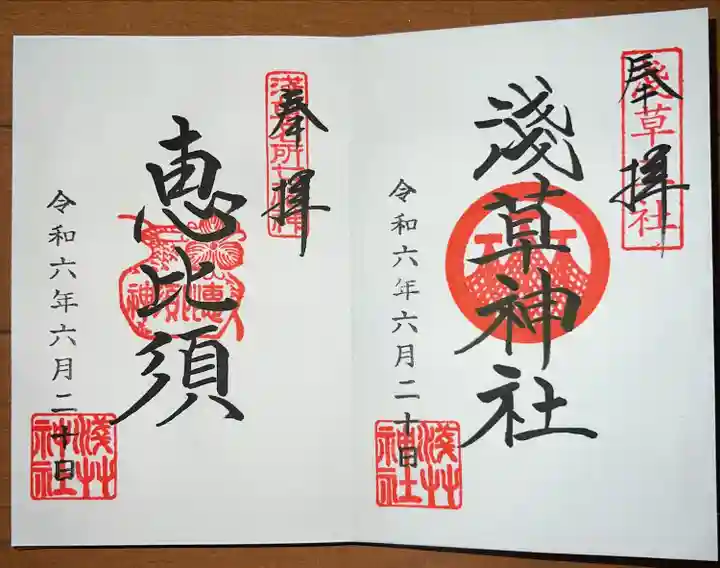 奉拝
淺草神社
淺草神社
令和六年六月二十日
淺艸神社
奉拝
浅草名所七福神
恵比須
令和六年六月二十日
淺艸神社